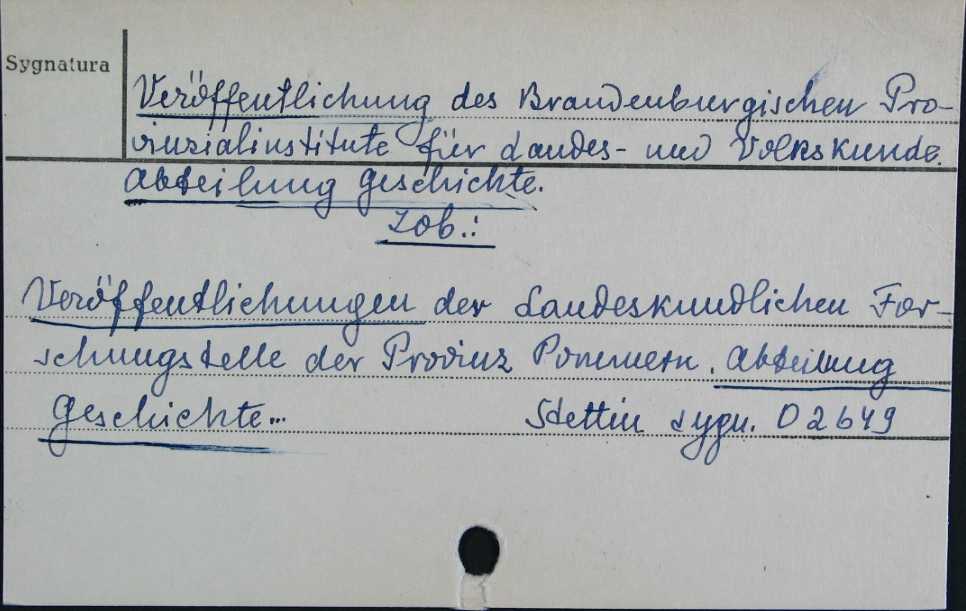 Sygnatura
Veröffentlichung des Brandenburgischen Pro-
vinzialinstitute für Landes- und Volkskunde.
Abteilung Geschichte.
Zob.:
Veröffentlichungen der Landeskundlichen For-
schungstelle der Provinz Pommern. Abteilung
Geschichte... Stettin sygn. O 2649